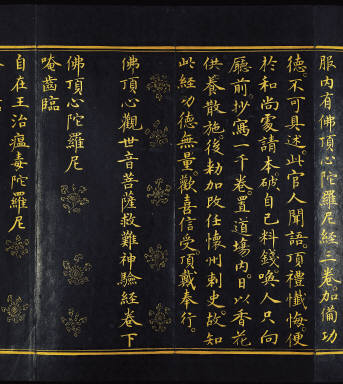 服内有佛頂心陀羅尼經三卷加備功
德不可具述此官人聞語頂禮懺悔便
於和尚處請本破自己料錢喚人只向
廳前抄寫一千卷置道場内日以香花
供養散施後勑加改任懷州刺史故知
此經功德無量歡喜信受頂戴奉行
佛頂心觀世音菩薩救難神驗經卷下
佛頂心陀羅尼
唵齒臨
自在王治瘟毒陀羅尼